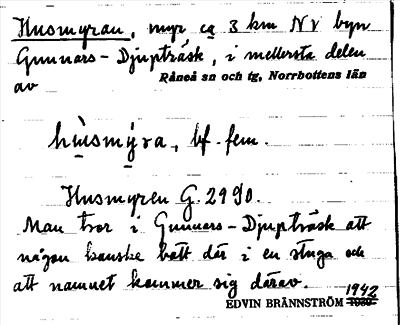 Husmyran, myr ca 3 km NV byn
Gunnars-Djupträsk, i mellersta delen
av
Råneå sn och tg, Norrbottens län
hùsmýra, bf. fem.
Husmyren G. 2990.
Man tror i Gunnars-Djupträsk att
någon kanske bott där i en stuga och
att namnet kommer sig därav.
1942
EDVIN BRÄNNSTRÖM 1930